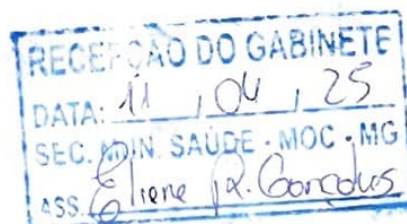 RECEPÇÃO DO GABINETE
DATA: 11 / 04 / 25
SEC. MUN. SAÚDE - MOC - MG
ASS. Eliene R. Gonçalves